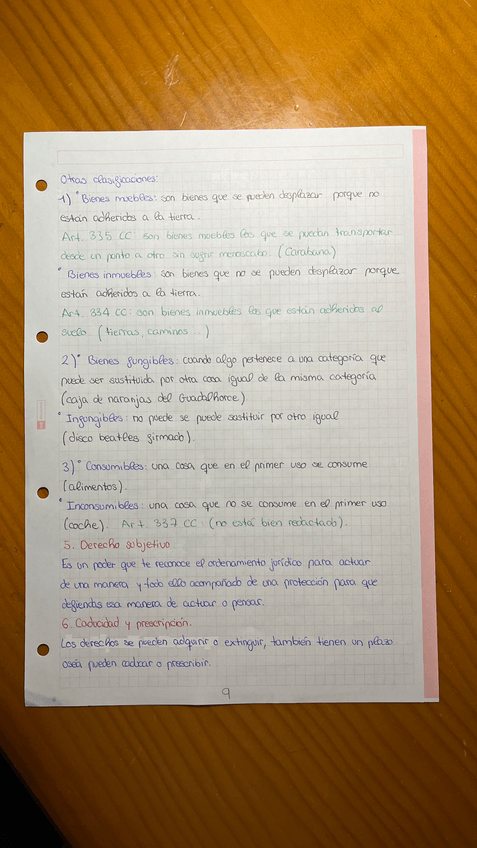 Otras clasificaciones:
1) • Bienes muebles: son bienes que se pueden desplazar porque no
están adheridos a la tierra.
Art. 335 CC: son bienes muebles los que se puedan transportar
desde un punto a otro sin sufrir menoscabo. (Carabana)
• Bienes inmuebles: son bienes que no se pueden desplazar porque
están adheridos a la tierra.
Art. 334 CC: son bienes inmuebles los que están adheridos al
suelo. (tierras, caminos...)
2) • Bienes fungibles: cuando algo pertenece a una categoría que
puede ser sustituida por otra cosa igual de la misma categoría
(caja de naranjas del Guadalhorce).
• Infungibles: no puede se puede sustituir por otro igual
(disco beatles firmado).
3) • Consumibles: una cosa que en el primer uso se consume
(alimentos).
• Inconsumibles: una cosa que no se consume en el primer uso
(coche). Art. 337 CC: (no está bien redactado).
5. Derecho subjetivo
Es un poder que te reconoce el ordenamiento jurídico para actuar
de una manera y todo ello acompañado de una protección para que
defiendas esa manera de actuar o pensar.
6. Caducidad y prescripción.
Los derechos se pueden adquirir o extinguir, también tienen un plazo
osea pueden caducar o prescribir.
9